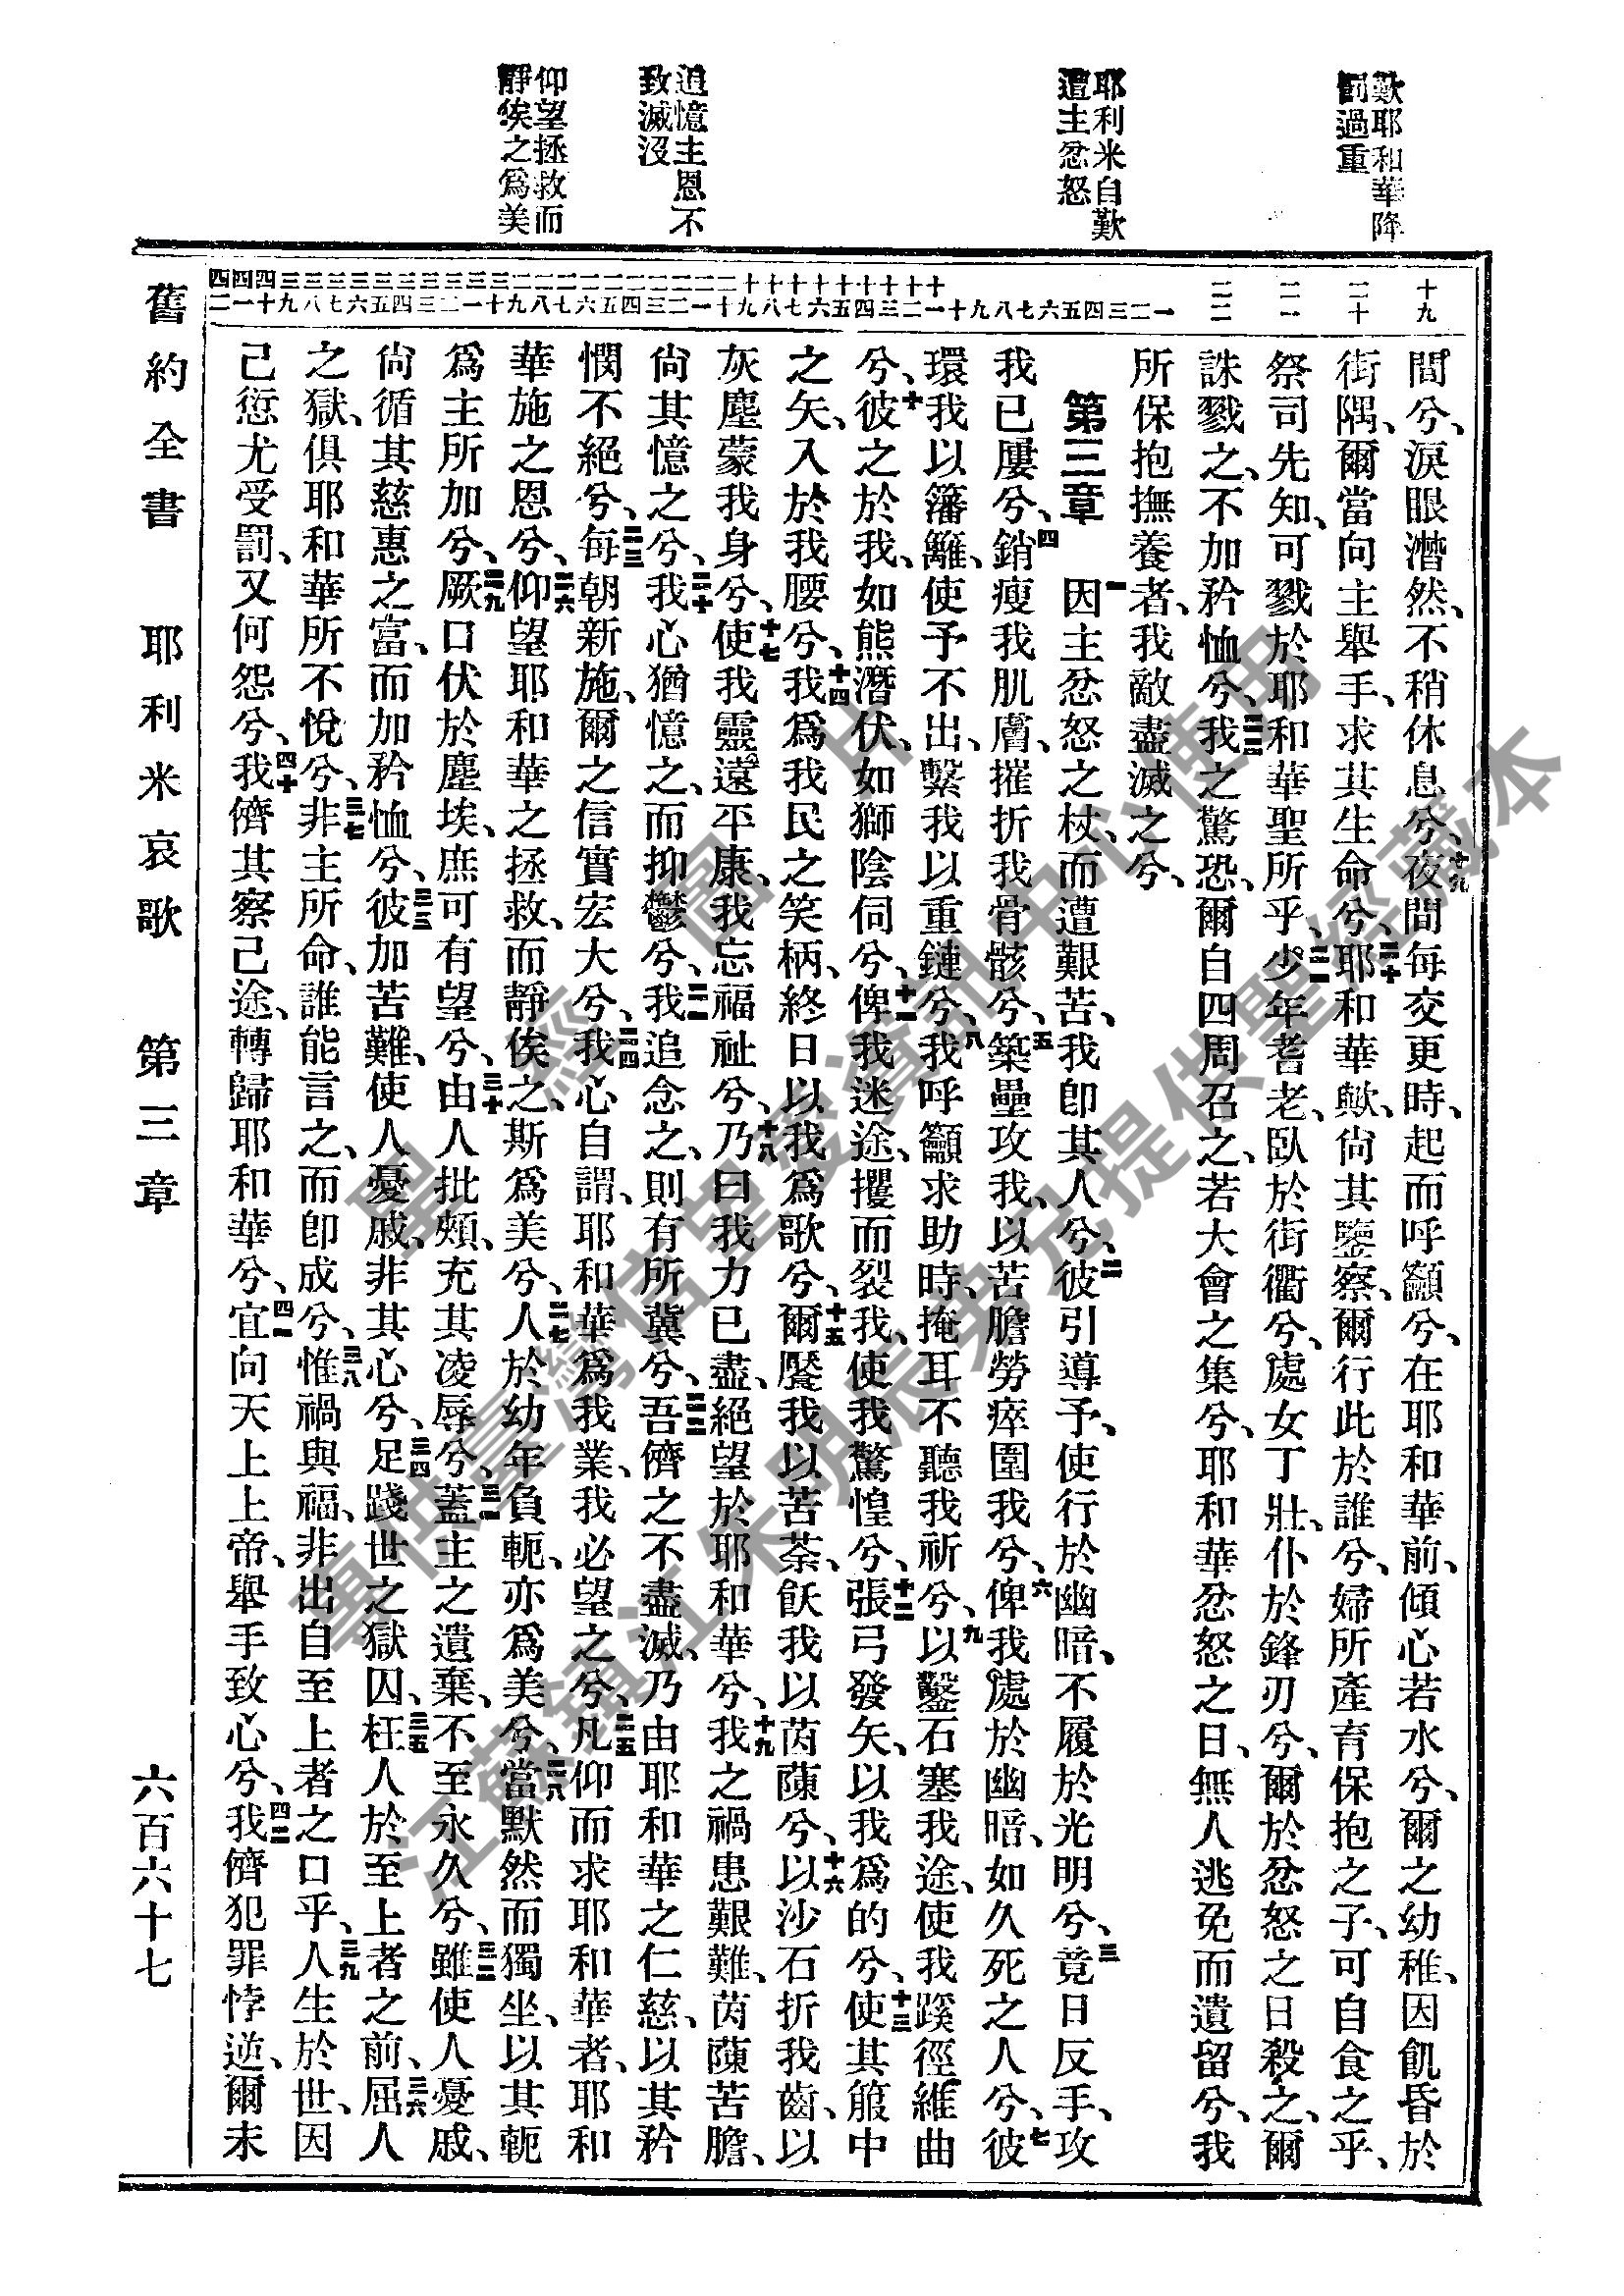 歎耶和華降
罰過重
耶利米自歎
遭主忿怒
追憶主恩不
致滅沒
仰望拯救而
靜俟之爲美
十九
二十
二一
二二
一 二 三 四 五 六 七 八 九 十 十一 十二 十三 十四 十五 十六 十七 十八 十九 二十 二一 二二 二三 二四 二五 二六 二七 二八 二九 三十 三一 三二 三三 三四 三五 三六 三七 三八 三九 四十 四一 四二
間兮、淚眼潸然、不稍休息兮、十九夜間每交更時、起而呼籲兮、在耶和華前、傾心若水兮、爾之幼稚、因飢昏於
街隅、爾當向主舉手、求其生命兮、二十耶和華歟、尙其鑒察、爾行此於誰兮、婦所產育保抱之子、可自食之乎、
祭司先知、可戮於耶和華聖所乎、二一少年耆老、臥於街衢兮、處女丁壯、仆於鋒刃兮、爾於忿怒之日殺之、爾
誅戮之、不加矜恤兮、二二我之驚恐、爾自四周召之、若大會之集兮、耶和華忿怒之日、無人逃免而遺留兮、我
所保抱撫養者、我敵盡滅之兮、
第三章 一因主忿怒之杖、而遭艱苦、我卽其人兮、二彼引導予、使行於幽暗、不履於光明兮、三竟日反手、攻
我已屢兮、四銷瘦我肌膚、摧折我骨骸兮、五築壘攻我、以苦膽勞瘁圍我兮、六俾我處於幽暗、如久死之人兮、七彼
環我以籓籬、使予不出、繫我以重鏈兮、八我呼籲求助時、掩耳不聽我祈兮、九以鑿石塞我途、使我蹊徑維曲
兮、十彼之於我、如熊潛伏、如獅陰伺兮、十一俾我迷途、攫而裂我、使我驚惶兮、十二張弓發矢、以我爲的兮、十三使其箙中
之矢、入於我腰兮、十四我爲我民之笑柄、終日以我爲歌兮、十五爾饜我以苦荼、飫我以茵蔯兮、十六以沙石折我齒、以
灰塵蒙我身兮、十七使我靈遠平康、我忘福祉兮、十八乃曰我力已盡、絕望於耶和華兮、十九我之禍患艱難、茵蔯苦膽、
尙其憶之兮、二十我心猶憶之、而抑鬱兮、二一我追念之、則有所冀兮、二二吾儕之不盡滅、乃由耶和華之仁慈、以其矜
憫不絕兮、二三每朝新施、爾之信實宏大兮、二四我心自謂、耶和華爲我業、我必望之兮、二五凡仰而求耶和華者、耶和
華施之恩兮、二六仰望耶和華之拯救、而靜俟之、斯爲美兮、二七人於幼年負軛、亦爲美兮、二八當默然而獨坐、以其軛
爲主所加兮、二九厥口伏於塵埃、庶可有望兮、三十由人批頰、充其凌辱兮、三一蓋主之遺棄、不至永久兮、三二雖使人憂戚、
尙循其慈惠之富、而加矜恤兮、三三彼加苦難、使人憂戚、非其心兮、三四足踐世之獄囚、三五枉人於至上者之前、三六屈人
之獄、俱耶和華所不悅兮、三七非主所命、誰能言之、而卽成兮、三八惟禍與福、非出自至上者之口乎、三九人生於世、因
己愆尤受罰、又何怨兮、四十我儕其察己途、轉歸耶和華兮、四一宜向天上上帝、舉手致心兮、四二我儕犯罪悖逆、爾未
舊約全書 耶利米哀歌 第三章 六百六十七
聖經圖片
專供臺灣信望愛資訊中心使用
江蘇鎮江朱明辰弟兄提供聖經藏本